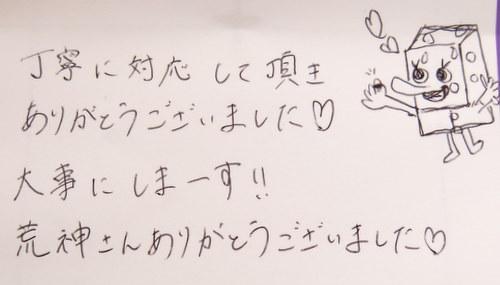 丁寧に対応して頂き
ありがとうございました♡
大事にしまーす!!
荒神さんありがとうございました♡